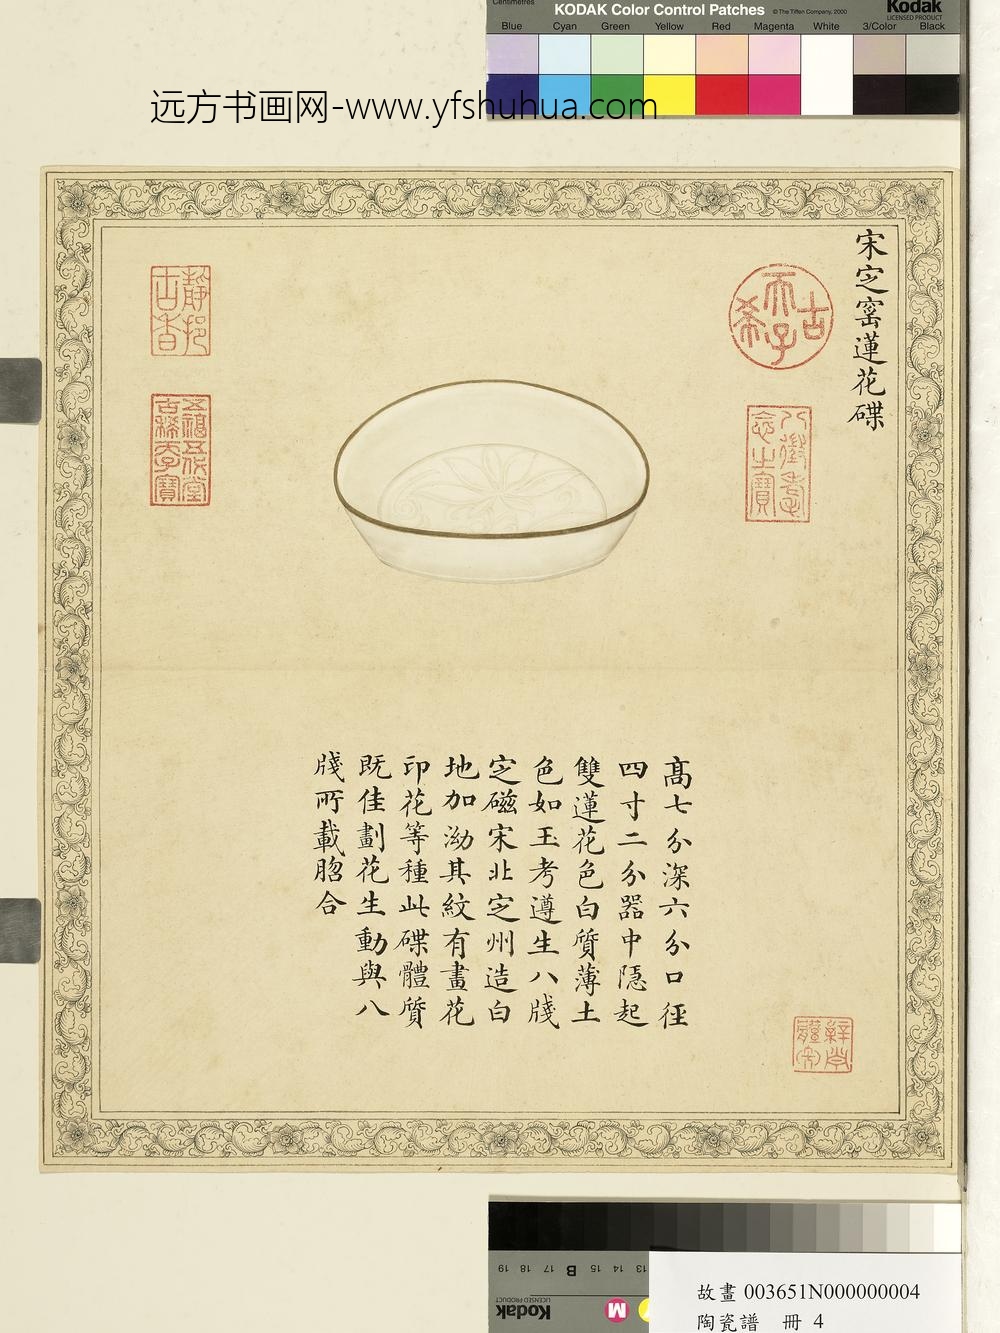 Centimetres
KODAK Color Control Patches
© The Tiffen Company, 2000
Kodak
LICENSED PRODUCT
Blue Cyan Green Yellow Red Magenta White 3/Color Black
远方书画网-www.yfshuhua.com
宋定窑蓮花碟
古希天子
八徵耄念之寶
靜挹古香
五福五代堂古稀天子寶
髙七分深六分口徑
四寸二分器中隱起
雙蓮花色白質薄土
色如玉考遵生八牋
定磁宋北定州造白
地加泑其紋有畫花
印花等種此碟體質
既佳劃花生動與八
牋所載脗合
19 18 17 B 15 14 13
Kodak
LICENSED PRODUCT
M
故畫 003651N000000004
陶瓷譜 冊 4